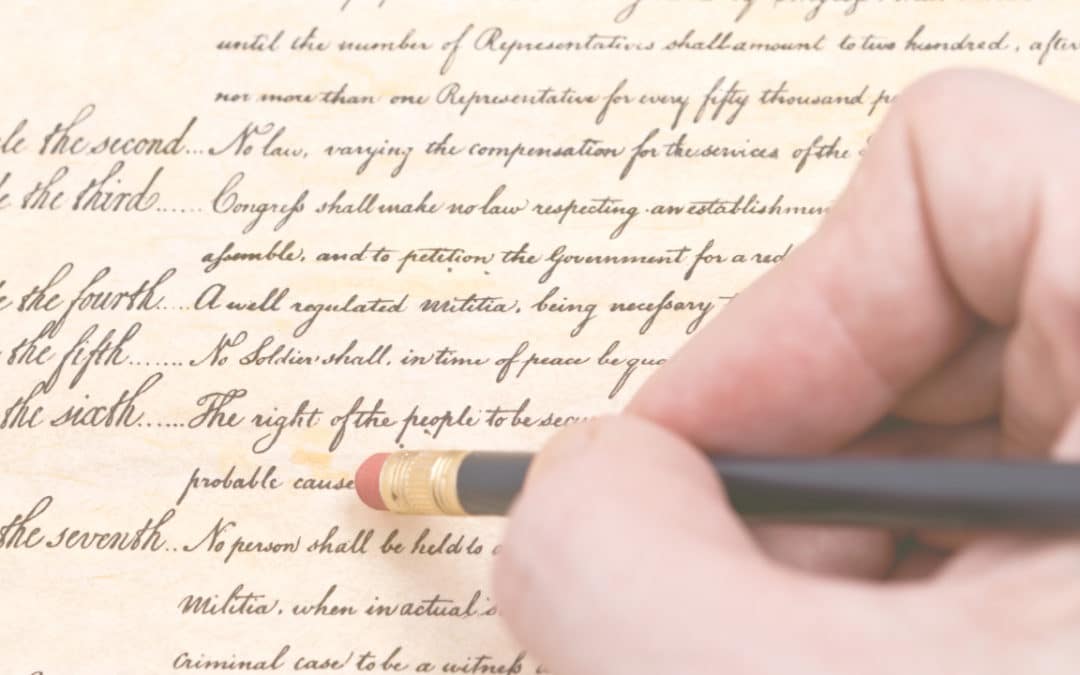 until the number of Representatives shall amount to two hundred, after
nor more than one Representative for every fifty thousand
the second... No law, varying the compensation for the services of the
the third...... Congreſs shall make no law respecting an establishmen
aſsemble, and to petition the Government for a red
the fourth..... A well regulated militia, being neceſsary
the fifth....... No Soldier shall, in time of peace be qua
the sixth...... The right of the people to be secu
probable cause
the seventh.. No person shall be held to
Militia, when in actual
criminal case to be a witneſs